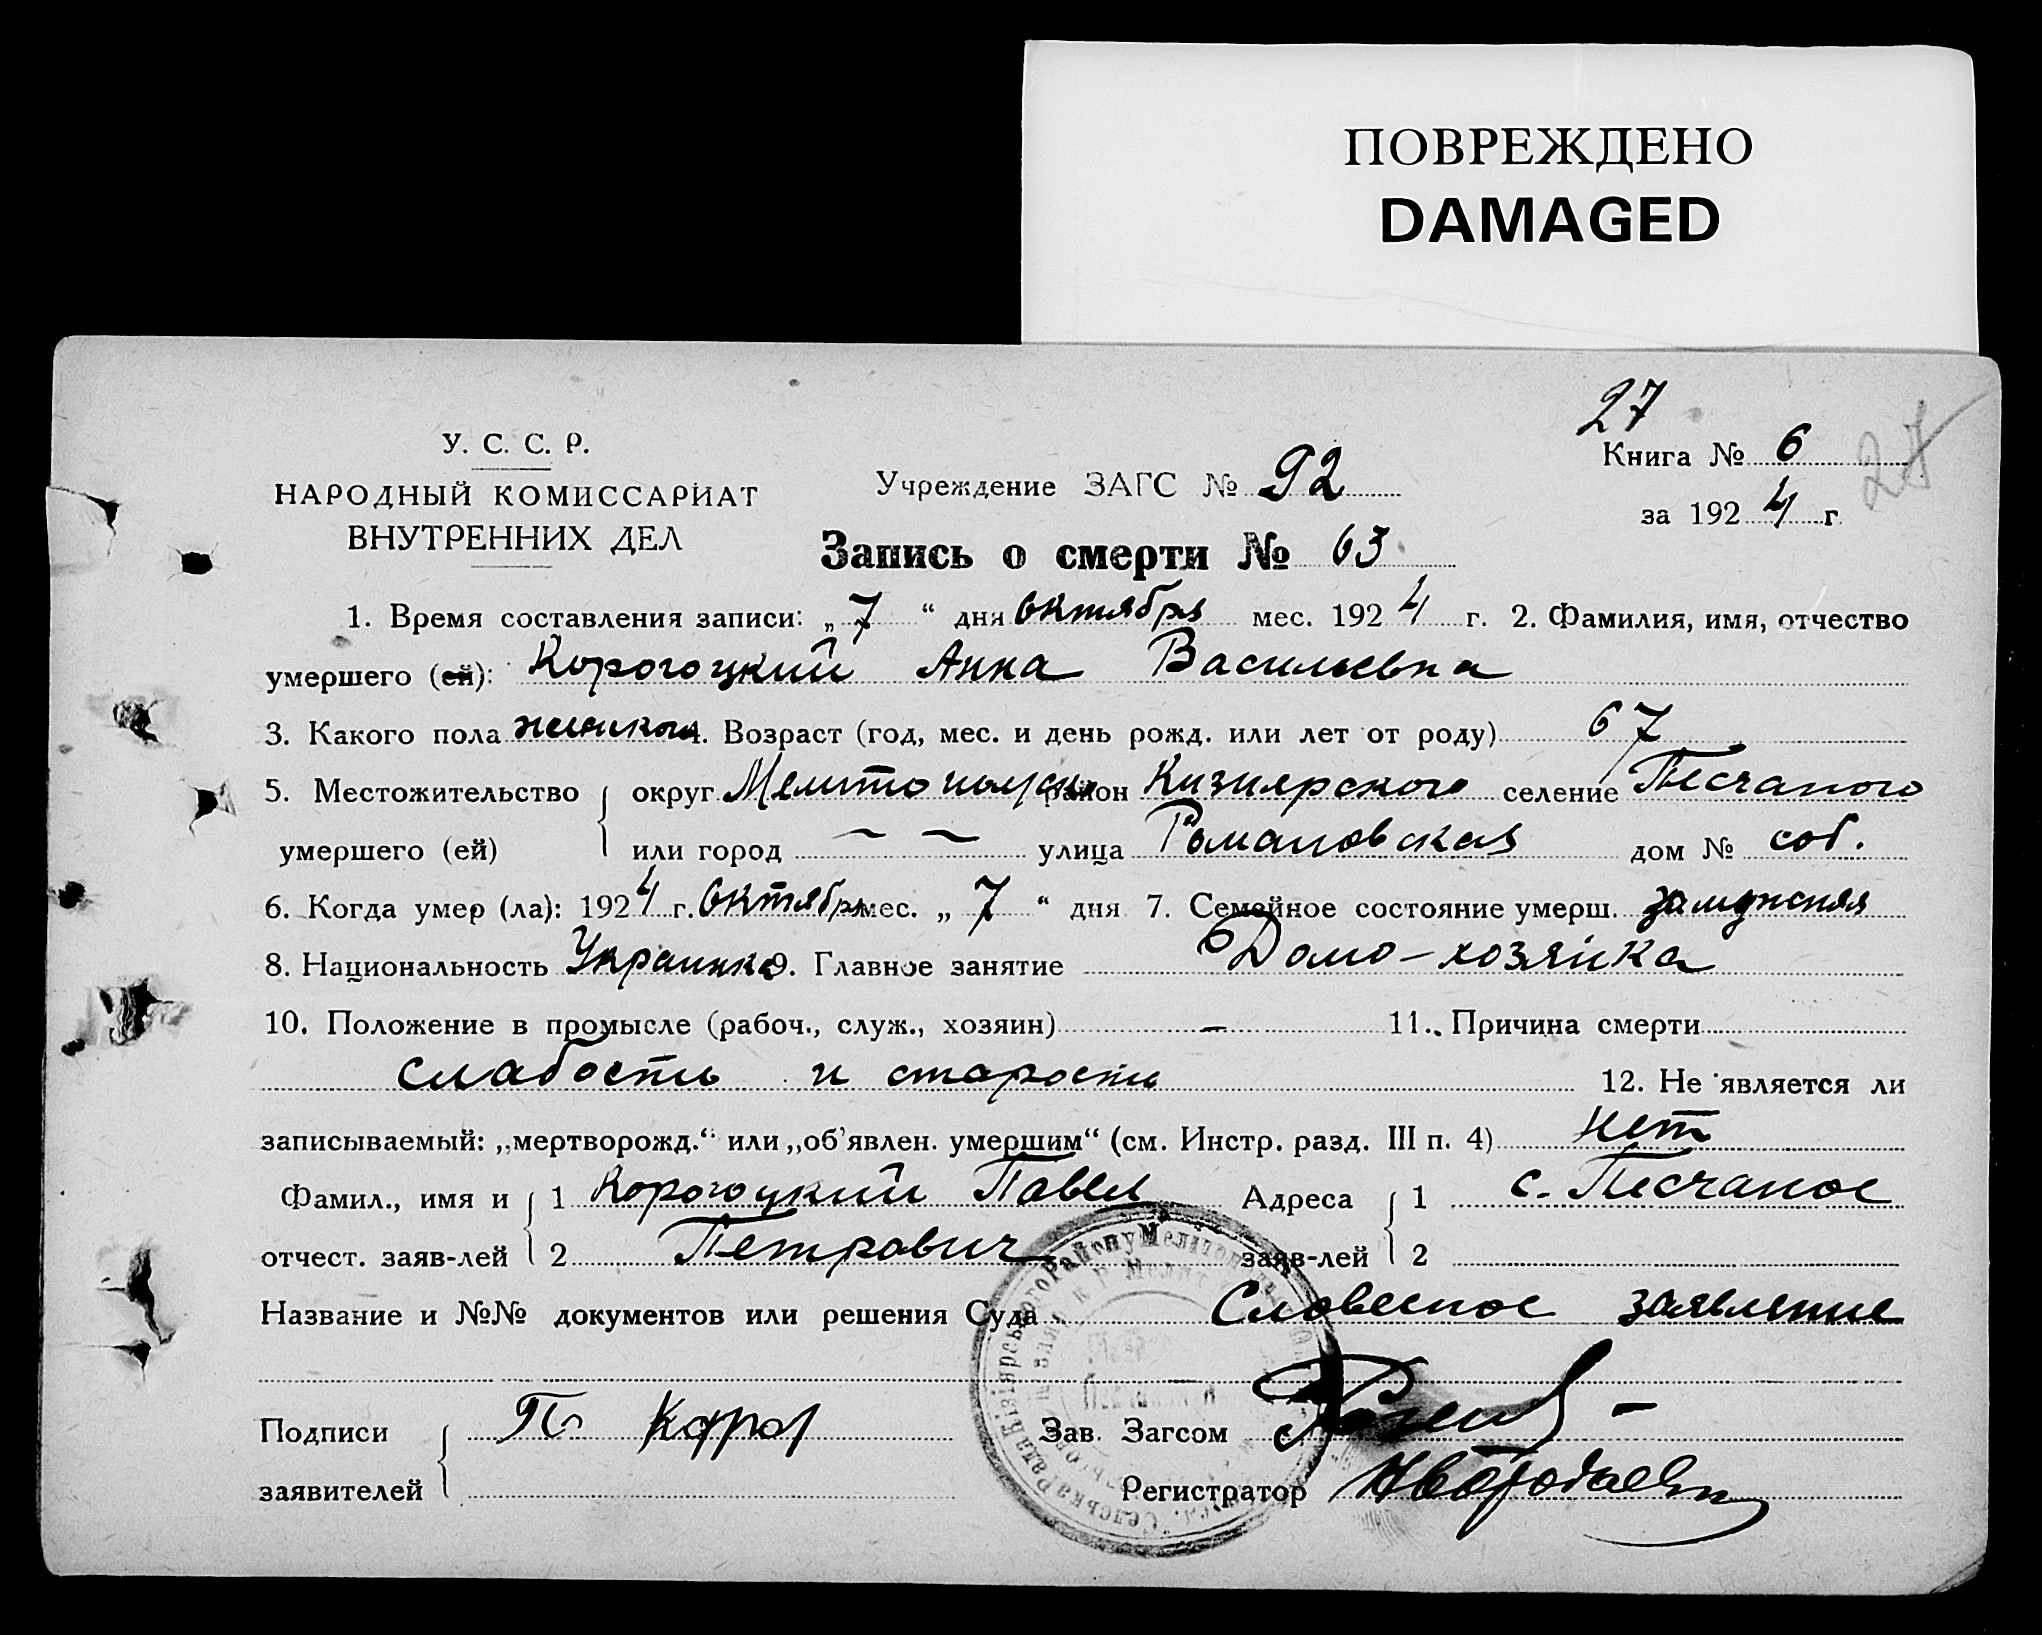 ПОВРЕЖДЕНО
DAMAGED
27
У. С. С. Р.
Книга № 6
27
НАРОДНЫЙ КОМИССАРИАТ
Учреждение ЗАГС № 92
за 1924 г.
ВНУТРЕННИХ ДЕЛ
Запись о смерти № 63
1. Время составления записи: „7“ дня октября мес. 1924 г. 2. Фамилия, имя, отчество
умершего (ей): Корогоцкий Анна Васильевна
3. Какого пола женского 4. Возраст (год, мес. и день рожд. или лет от роду) 67
5. Местожительство округ Мелитопольский район Кизиярского селение Песчаного
умершего (ей) или город — — улица Романовская дом № соб.
6. Когда умер (ла): 1924 г. Октября мес. „7“ дня 7. Семейное состояние умерш. замужняя
8. Национальность Украинка 9. Главное занятие Домо-хозяйка
10. Положение в промысле (рабоч., служ., хозяин) — 11. Причина смерти
слабость и старость 12. Не является ли
записываемый: „мертворожд.“ или „об'явлен. умершим“ (см. Инстр. разд. III п. 4) нет
Фамил., имя и 1 Корогоцкий Павел Адреса 1 с. Песчаное
отчест. заяв-лей 2 Петрович заяв-лей 2
Название и №№ документов или решения Суда Словесное заявление
Подписи П. Корог Зав. Загсом
заявителей Регистратор